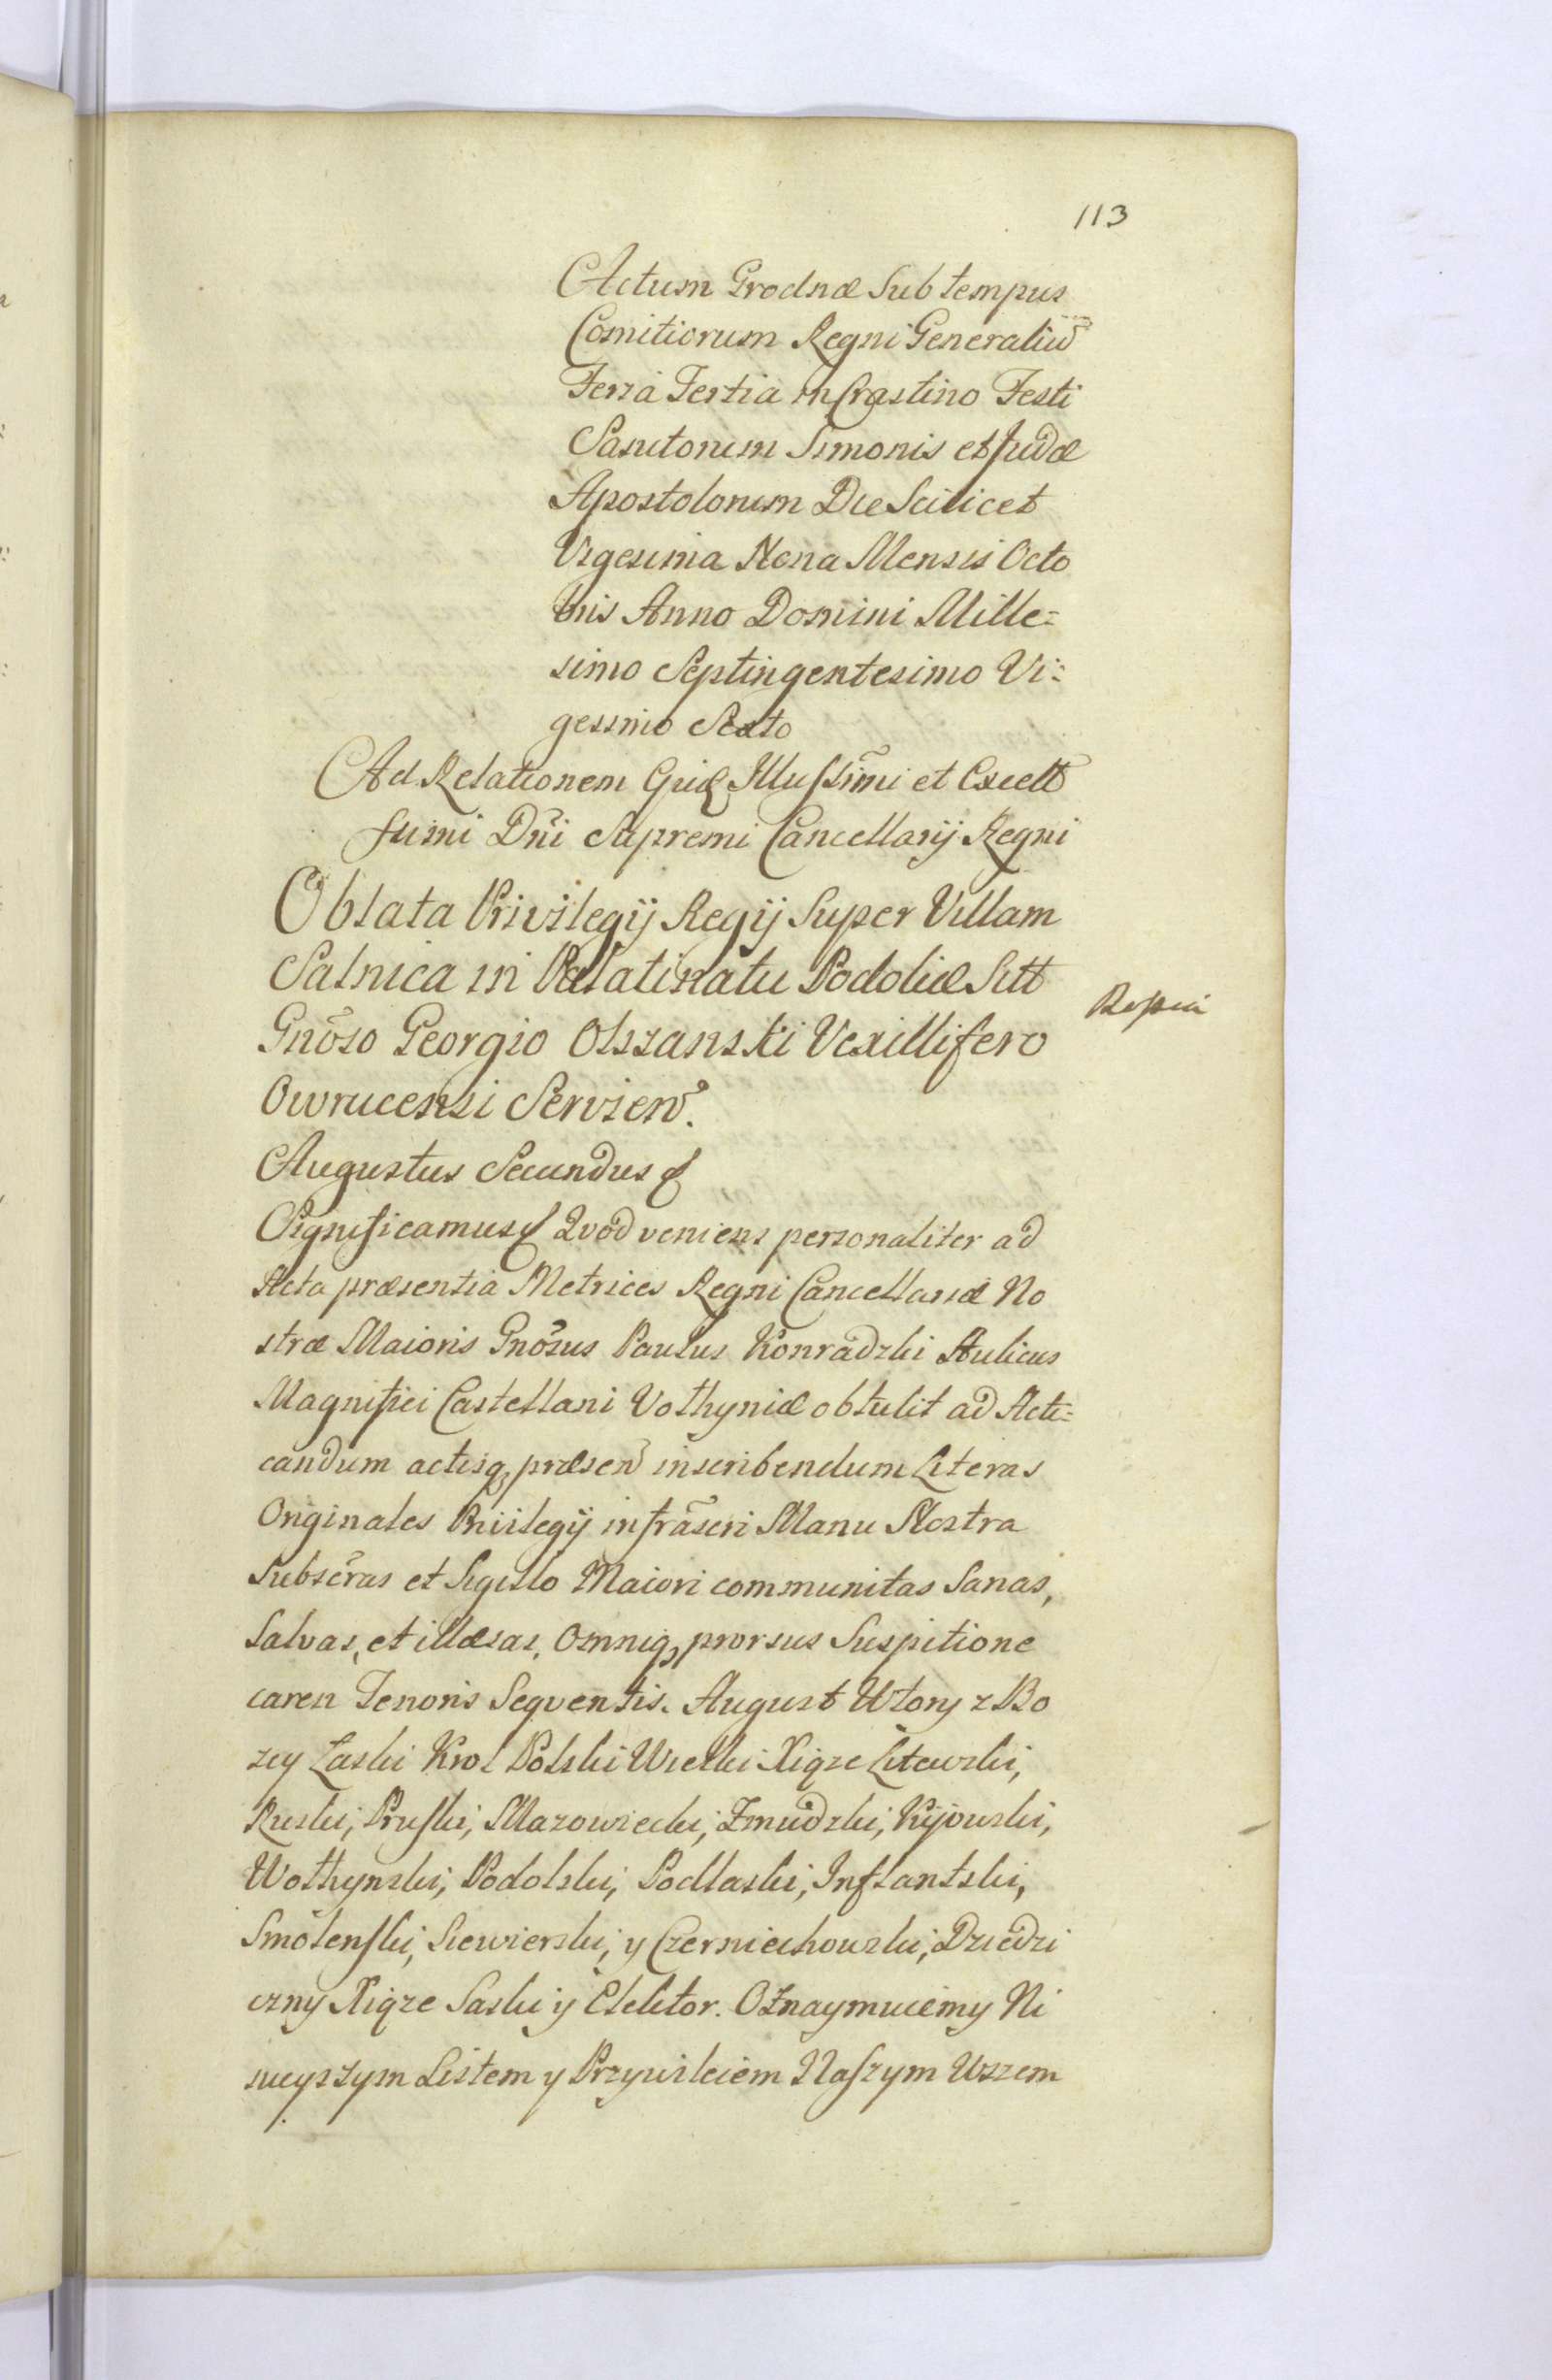 113
Actum Grodnæ Sub tempus
Comitiorum Regni Generaliu᷃
Feria Tertia in Crastino Festi
Sanctorum Simonis et Judæ
Apostolorum Die Scilicet
Vigesima Nona Mensis Octo
bris Anno Domini Mille=
simo Septingentesimo Vi=
gesimo Sexto
Ad Relationem Illussimi et Excell
ssimi Dni Supremi Cancellarij Regni
Oblata Privilegij Regij Super Villam
Salnica in Palatinatu Podoliæ Sitt
Gnõso Georgio Olszanski Vexillifero
Owrucensi Servien.
Augustus Secundus
Significamus Qvod veniens personaliter ad
Acta præsentia Metrices Regni Cancellariæ No
stræ Maioris Gnõsus Paulus Konradzki Aulicus
Magnifici Castellani Vołhyniæ obtulit ad Acti=
candum actisq præsen inscribendum Literas
Originales Privilegij infrãscri Manu Nostra
Subscras et Sigillo Maiori communitas Sanas,
Salvas, et illæsas, Omniq prorsus Suspitione
caren Tenoris Seqventis. August Wtory z Bo
zey Łaski Krol Polski Wielki Xiąze Litewski,
Ruski, Pruski, Mazowiecki, Zmudzki, Kijowski,
Wołhynski, Podolski, Podlaski, Inflantski,
Smolenski, Siewierski, y Czerniechowski, Dziedzi
czny Xiąze Saski y Elektor. Oznaymuiemy Ni
nieyszym Listem y Przywileiem Naszym Wszem